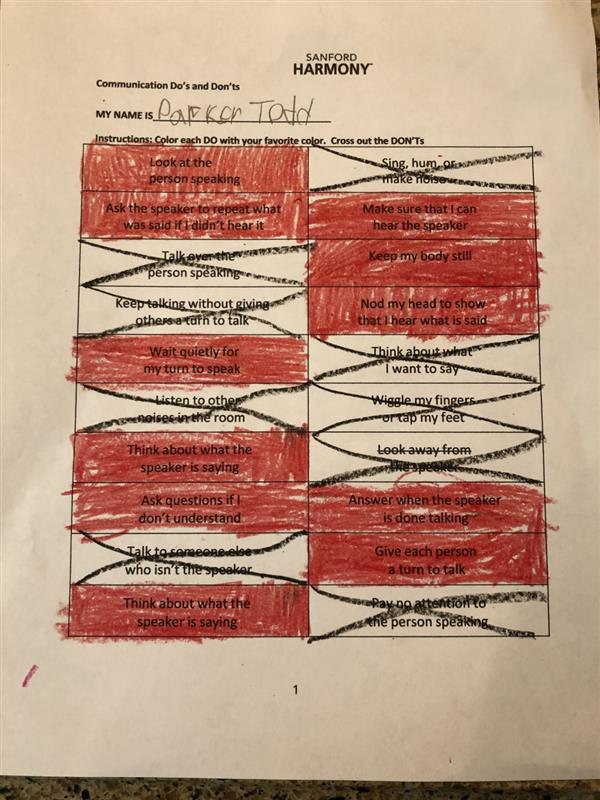 SANFORD
HARMONY™
Communication Do's and Don'ts
MY NAME IS Parker Todd
Instructions: Color each DO with your favorite color. Cross out the DON'Ts
Look at the
person speaking
Sing, hum, or
make noise
Ask the speaker to repeat what
was said if I didn't hear it
Make sure that I can
hear the speaker
Talk over the
person speaking
Keep my body still
Keep talking without giving
others a turn to talk
Nod my head to show
that I hear what is said
Wait quietly for
my turn to speak
Think about what
I want to say
Listen to other
noises in the room
Wiggle my fingers
or tap my feet
Think about what the
speaker is saying
Look away from
the speaker
Ask questions if I
don't understand
Answer when the speaker
is done talking
Talk to someone else
who isn't the speaker
Give each person
a turn to talk
Think about what the
speaker is saying
Pay no attention to
the person speaking
1